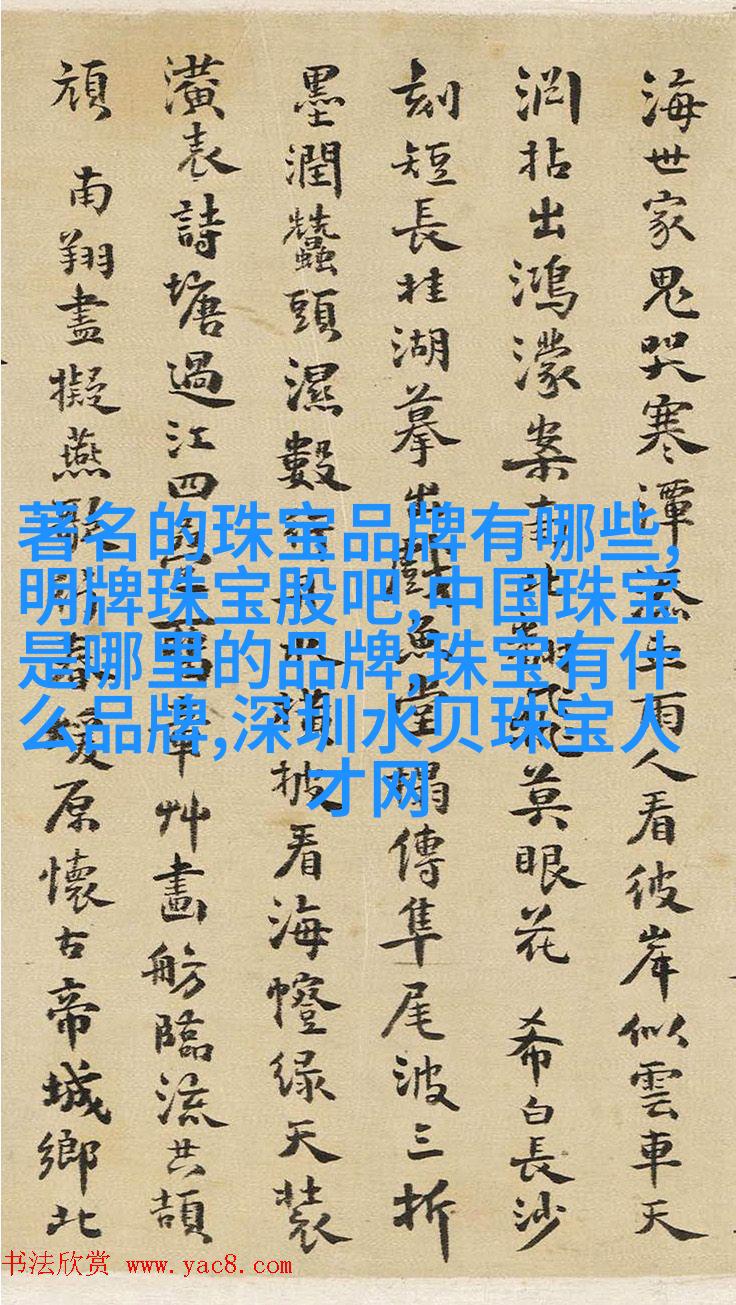 海世家鬼哭寒潭上雨人看彼岸似雲車天
拈出鴻濛案飛莫眼花 希白長沙
刻短長桂湖摹出魚堂榻傳隼尾波三折
墨潤蠶頭濕數披看海幢緑天裝
潢表詩塘過江四年艸畫舫臨流共頡
頏 南翔盡擬燕歌緩原懷古帝城鄉北
著名的珠宝品牌有哪些,
明牌珠宝股吧,中国珠宝
是哪里的品牌,珠宝有什
么品牌,深圳水贝珠宝人
才网
书法欣赏 www.yac8.com